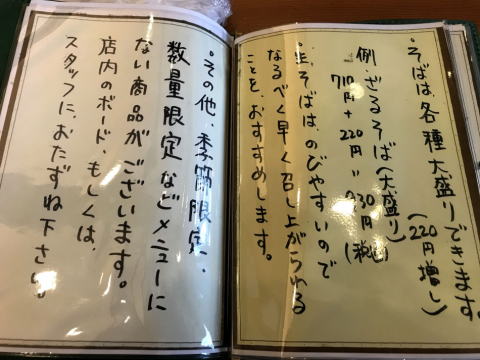 ・そばは、各種大盛りできます。
(220円増し)
例・ざるそば(大盛り)
710円+220円=930円(税込)
・生そばは、のびやすいので
なるべく早く召し上がられる
ことを、おすすめします。
・その他、季節限定、
数量限定などメニューに
ない商品がございます。
店内のボード、もしくは、
スタッフに、おたずね下さい。